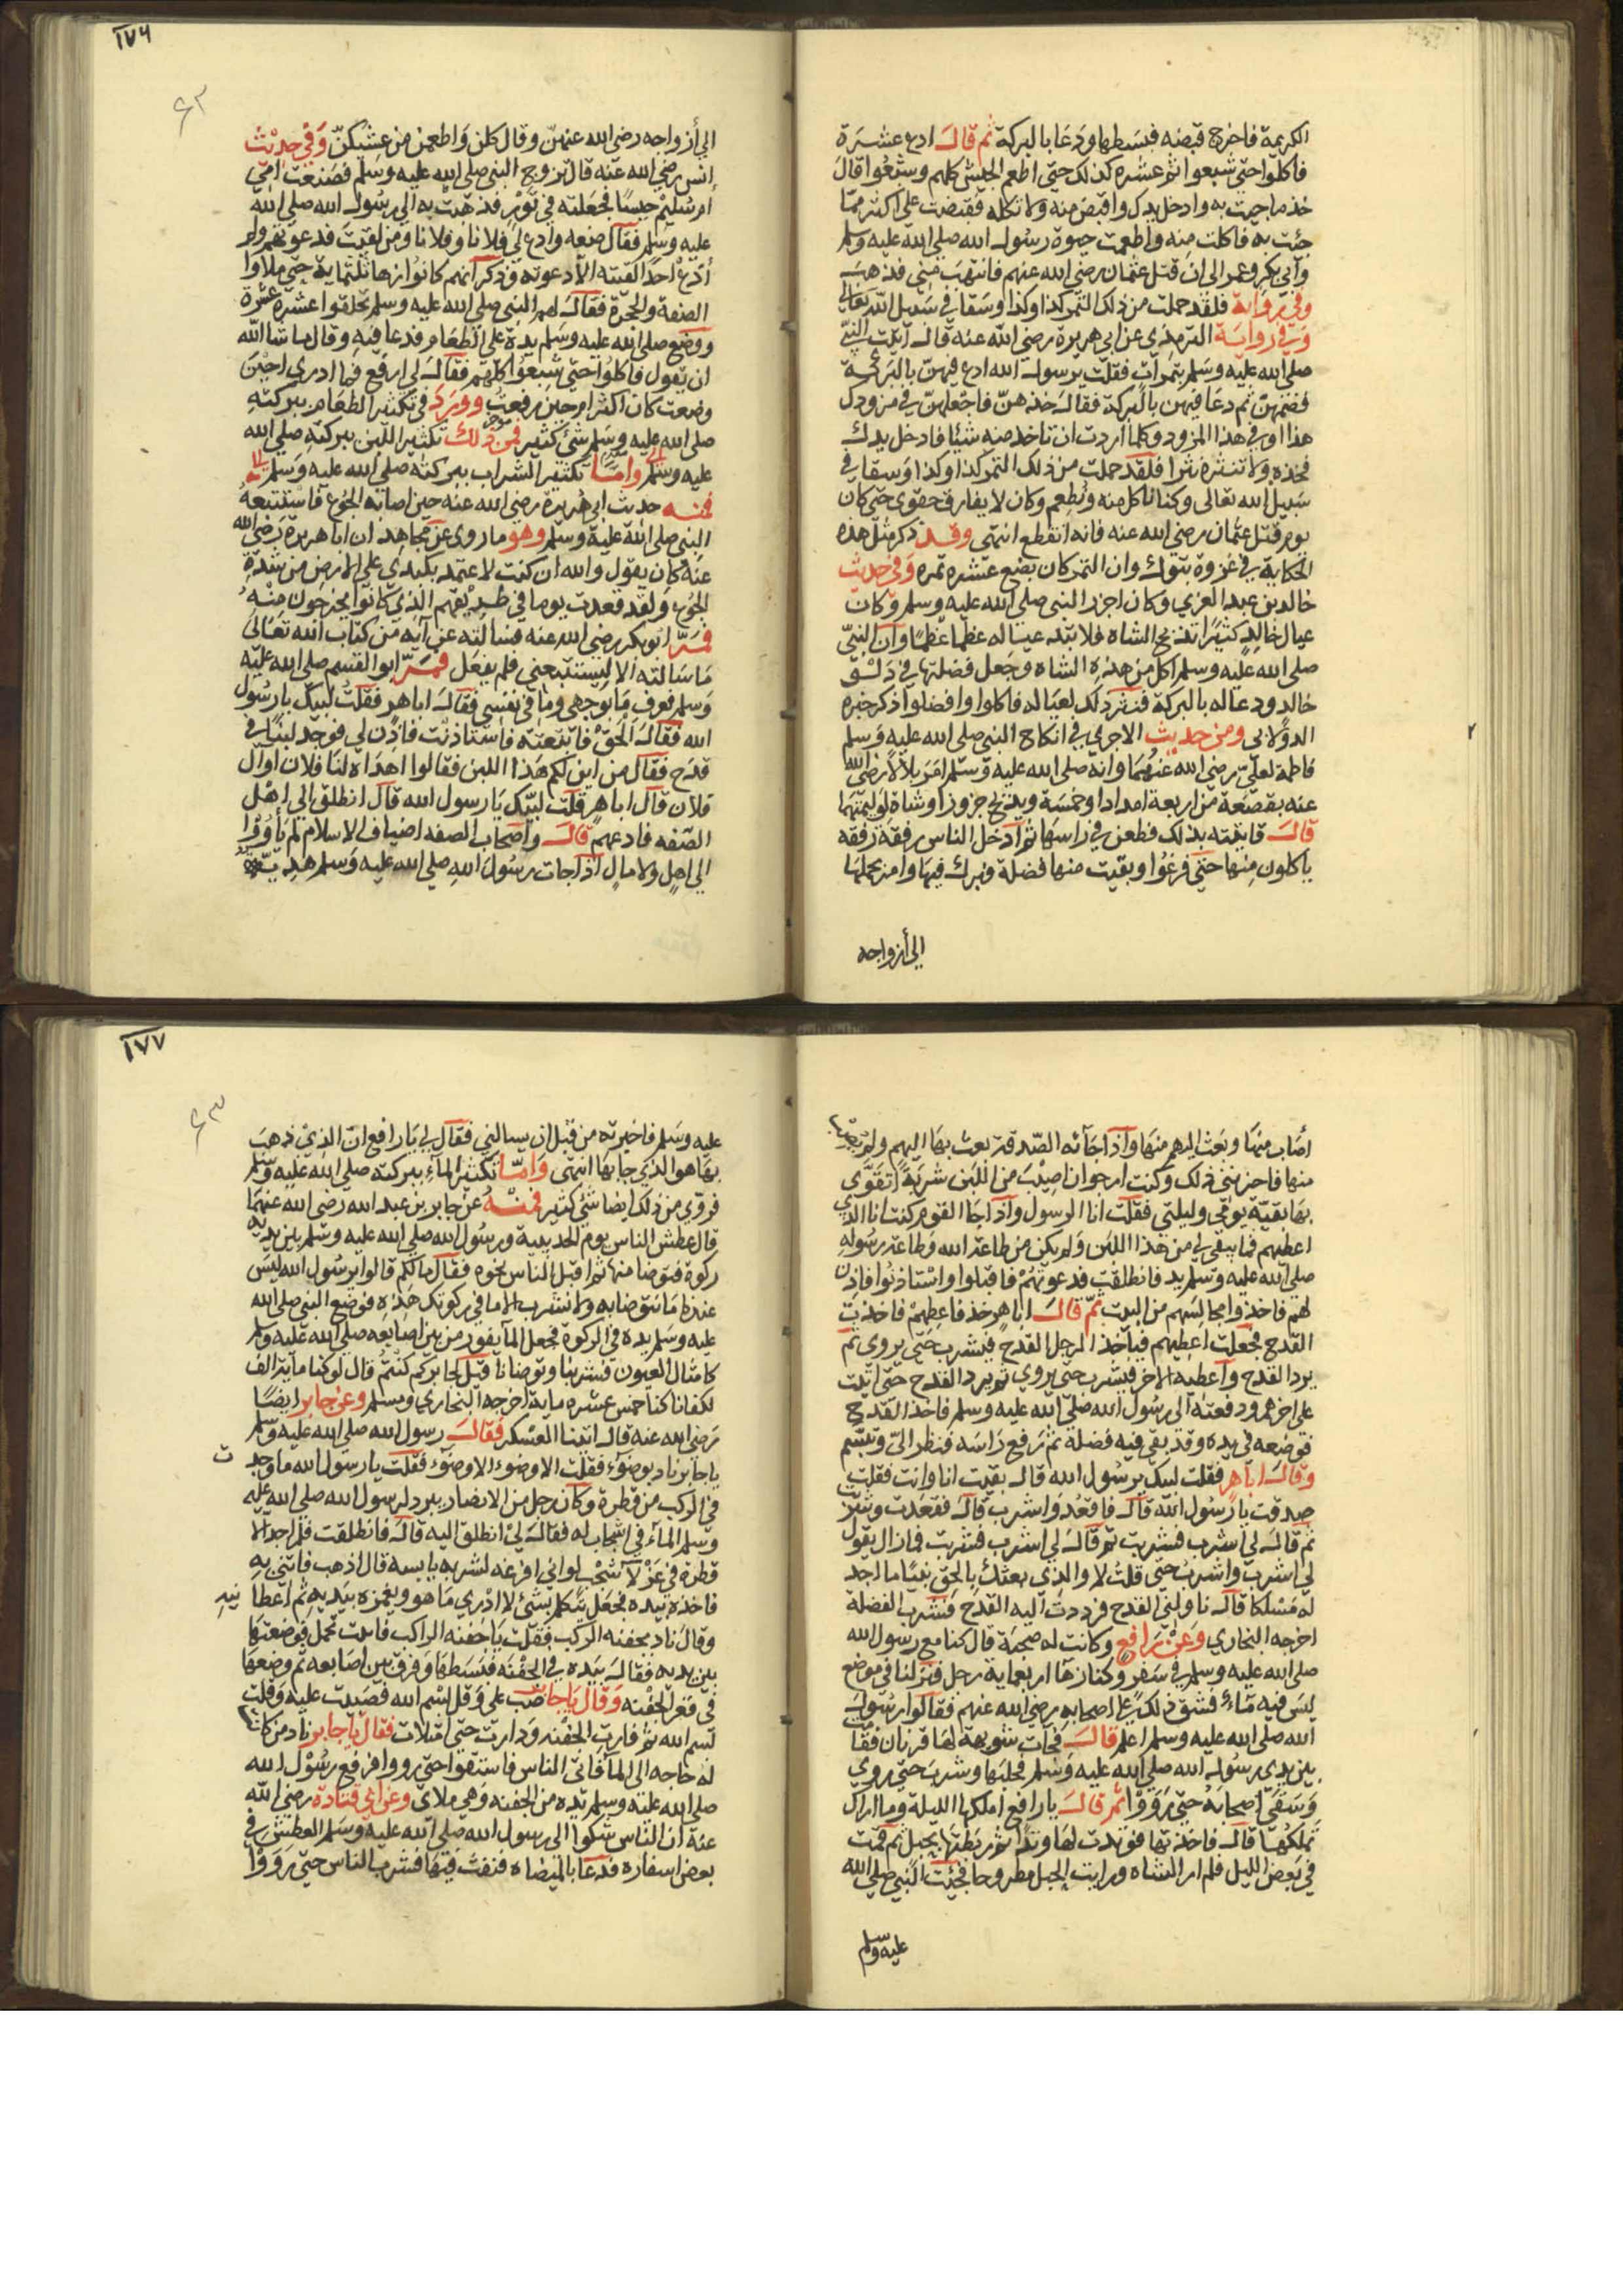 الكريمة فاخرج قبضه فبسطها ودعا بالبركة ثم قال ادع عشرة
فاكلوا حتى شبعوا ثم عشره كذلك حتى اطعم الجيش كلهم وشبعوا قال
خذ ما جيت به وادخل يدك واقبض منه ولا تكله فقبضت على اكثر مما
جئت به فاكلت منه واطعمت حيوة رسول الله صلى الله عليه وسلم
وابي بكر وعمر الى ان قتل عثمان رضي الله عنهم فانتهب مني فذهب
وفي رواية فلقد حملت من ذلك التمر كذا وكذا وسقا في سبيل الله تعالى
وفي رواية الترمذي عن ابي هريرة رضي الله عنه قال اتيت النبي
صلى الله عليه وسلم بتمرات فقلت يرسول الله ادع فيهن بالبركة
فضمهن ثم دعا فيهن بالبركة فقال خذهن فاجعلهن في مزودك
هذا او في هذا المزود وكلما اردت ان تاخذ منه شيئا فادخل يدك
فخذه ولا تنثره نثرا فلقد حملت من ذلك التمر كذا وكذا وسقا في
سبيل الله تعالى وكنا ناكل منه ونطعم وكان لا يفارق حقوى حتى كان
يوم قتل عثمان رضي الله عنه فانه انقطع انتهى وقد ذكر مثل هذه
الحكاية في غزوة تبوك وان التمر كان بضع عشره تمره وفي حديث
خالد بن عبد العزي وكان اجزر النبي صلى الله عليه وسلم وكان
عيال خالد كثيرا تذبح الشاه فلا تبد عياله عظما عظما وان النبي
صلى الله عليه وسلم اكل من هذه الشاه وجعل فضلتها في دلو
خالد ودعا له بالبركة فنثر ذلك لعياله فاكلوا وافضلوا ذكر خبره
الدولابي ومن حديث الاجرمي في انكاح النبي صلى الله عليه وسلم
فاطمة لعلي رضي الله عنهما وانه صلى الله عليه وسلم امر بلالا رضي الله
عنه بقصعة من اربعة امداد او خمسة ويذبح جزورا وشاة لوليمتها
قال فاتيته بذلك فطعن في راسها ثم ادخل الناس رفقة رفقة
ياكلون منها حتى فرغوا وبقيت منها فضلة فبرك فيها وامر بحملها
الى أزواجه
١٧٦
٤٣
الى أزواجه رضي الله عنهن وقال كلن واطعمن من عشبكن وفي حديث
انس رضي الله عنه قال تزوج النبي صلى الله عليه وسلم فصنعت امي
ام سليم حيسا فجعلته في تور فذهبت به الى رسول الله صلى الله
عليه وسلم فقال ضعه وادع لي فلانا وفلانا ومن لقيت فدعوتهم ولم
أدع احدا لقيته الا دعوته وذكر انهم كانوا زها ثلثماية حتى ملاوا
الصفة والحجرة فقال لهم النبي صلى الله عليه وسلم تحلقوا عشرة عشرة
ووضع صلى الله عليه وسلم يده على الطعام فدعا فيه وقال ما شاالله
ان يقول فاكلوا حتى شبعوا كلهم فقال لي ارفع فما ادري احين
وضعت كان اكثر ام حين رفعت وورد في تكثير الطعام ببركته
صلى الله عليه وسلم شئ كثير فمن ذلك تكثير اللبن ببركته صلى الله
عليه وسلم واما تكثير الشراب ببركته صلى الله عليه وسلم
فمنه حديث ابي هريرة رضي الله عنه حين اصابه الجوع فاستتبعه
النبي صلى الله عليه وسلم وهو ما روى عن مجاهد ان ابا هريرة رضي الله
عنه كان يقول والله ان كنت لاعتمد بكبدي على الارض من شدة
الجوع ولقد قعدت يوما في طريقهم الذي كانوا يخرجون منه
فمر ابو بكر رضي الله عنه فسالته عن آية من كتاب الله تعالى
ما سالته الا ليستتبعني فلم يفعل فمر ابو القسم صلى الله عليه
وسلم فعرف ما بوجهي وما في نفسي فقال اباهر فقلت لبيك يا رسول
الله فقال الحق فاتبعته فاستاذنت فاذن لي فوجد لبنا في
قدح فقال من اين لكم هذا اللبن فقالوا اهداه لنا فلان او ال
فلان قال اباهر قلت لبيك يا رسول الله قال انطلق الى اهل
الصفه فادعهم قال واصحاب الصفه اضياف الاسلام لم ياووا
الى اهل ولا مال اذا جات رسول الله صلى الله عليه وسلم هدية
اصاب منها وبعث اليهم منها واذا جاته الصدقة بعث بها اليهم ولم يصب
منها فاحزنني ذلك وكنت ارجوا ان اصيب من اللبن شربة اتقوى
بها بقية يومي وليلتي فقلت انا الرسول واذا جا القوم كنت انا الذي
اعطيهم فما يبقى لي من هذا اللبن ولم يكن من طاعة الله وطاعة رسوله
صلى الله عليه وسلم بد فانطلقت فدعوتهم فاقبلوا واستاذنوا فاذن
لهم فاخذوا مجالسهم من البيت ثم قال اباهر خذ فاعطهم فاخذت
القدح فجعلت اعطيهم فياخذ الرجل القدح فيشرب حتى يروى ثم
يرد القدح واعطيه الاخر فيشرب حتى يروي ثم يرد القدح حتى اتيت
على اخرهم ودفعته الى رسول الله صلى الله عليه وسلم فاخذ القدح
فوضعه في يده وقد بقي فيه فضلة ثم رفع راسه فنظر الي وتبسم
وقال اباهر فقلت لبيك يرسول الله قال بقيت انا وانت فقلت
صدقت يا رسول الله قال فاقعد واشرب قال فقعدت وشربت
ثم قال لي اشرب فشربت ثم قال لي اشرب فشربت فما زال يقول
لي اشرب واشرب حتى قلت لا والذي بعثك بالحق نبيا ما اجد
له مسلكا قال ناولني القدح فرددت اليه القدح فشرب الفضلة
اخرجه البخاري وعن رافع وكانت له صحبة قال كنا مع رسول الله
صلى الله عليه وسلم في سفر وكنا زها اربعماية رجل فنزلنا في موضع
ليس فيه ماء فشق ذلك على اصحابه رضي الله عنهم فقالوا رسول
الله صلى الله عليه وسلم اعلم قال فجات شويهة لها قرنان فقامت
بين يدي رسول الله صلى الله عليه وسلم فحلبها وشرب حتى روي
وسقى اصحابه حتى رووا ثم قال يا رافع املكها الليلة وما اراك
تملكها قال فاخذتها فوتدت لها وتدا ثم ربطتها بحبل ثم قمت
في بعض الليل فلم ار الشاه ورايت الحبل مطروحا فجئت النبي صلى الله
عليه وسلم
١٧٧
٤٣
عليه وسلم فاخبرته من قبل ان يسالني فقال لي يا رافع ان الذي ذهب
بها هو الذي جا بها انتهى واما تكثير الماء ببركته صلى الله عليه وسلم
فروي من ذلك ايضا شئ كثير فمنه عن جابر بن عبد الله رضي الله عنهما
قال عطش الناس يوم الحديبية ورسول الله صلى الله عليه وسلم بين يديه
ركوة فتوضا منها ثم اقبل الناس نحوه فقال ما لكم قالوا يرسول الله ليس
عندنا ما نتوضا به ولا نشرب الا ما في ركوتك هذه فوضع النبي صلى الله
عليه وسلم يده في الركوة فجعل الما يفور من بين اصابعه صلى الله عليه وسلم
كامثال العيون فشربنا وتوضانا قيل لجابر كم كنتم قال لو كنا ماية الف
لكفانا كنا خمس عشره ماية اخرجه البخاري ومسلم وعن جابر ايضا
رضي الله عنه قال اتينا العسكر فقال رسول الله صلى الله عليه وسلم
يا جابر ناد بوضوء فقلت الا وضوء الا وضوء فقلت يا رسول الله ما وجدت
في الركب من قطرة وكان رجل من الانصار يبرد لرسول الله صلى الله عليه
وسلم الماء في اشجاب له فقال لي انطلق اليه قال فانطلقت فلم اجد الا
قطرة في عزلا شجب لو اني افرغه لشربه يابسه قال اذهب فاتني به
فاخذه بيده فجعل يتكلم بشئ لا ادري ما هو ويغمزه بيديه ثم اعطانيه
وقال ناد بجفنه الركب فقلت يا جفنه الراكب فاتيت تحمل فوضعتها
بين يديه فقال بيده في الجفنه فبسطها وفرق بين اصابعه ثم وضعها
في قعر الجفنه وقال يا جابر صب علي وقل بسم الله فصببت عليه وقلت
بسم الله ثم فارت الجفنه ودارت حتى امتلات فقال يا جابر ناد من كانت
له حاجه الى الما فاتى الناس فاستقوا حتى رووا فرفع رسول الله
صلى الله عليه وسلم يده من الجفنه وهي ملاى وعن ابي قتادة رضي الله
عنه ان الناس شكوا الى رسول الله صلى الله عليه وسلم العطش في
بعض اسفاره فدعا بالميضاه فنفث فيها فشرب الناس حتى رووا